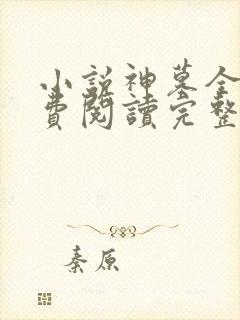 小説神墓全
費閱讀完整
秦原